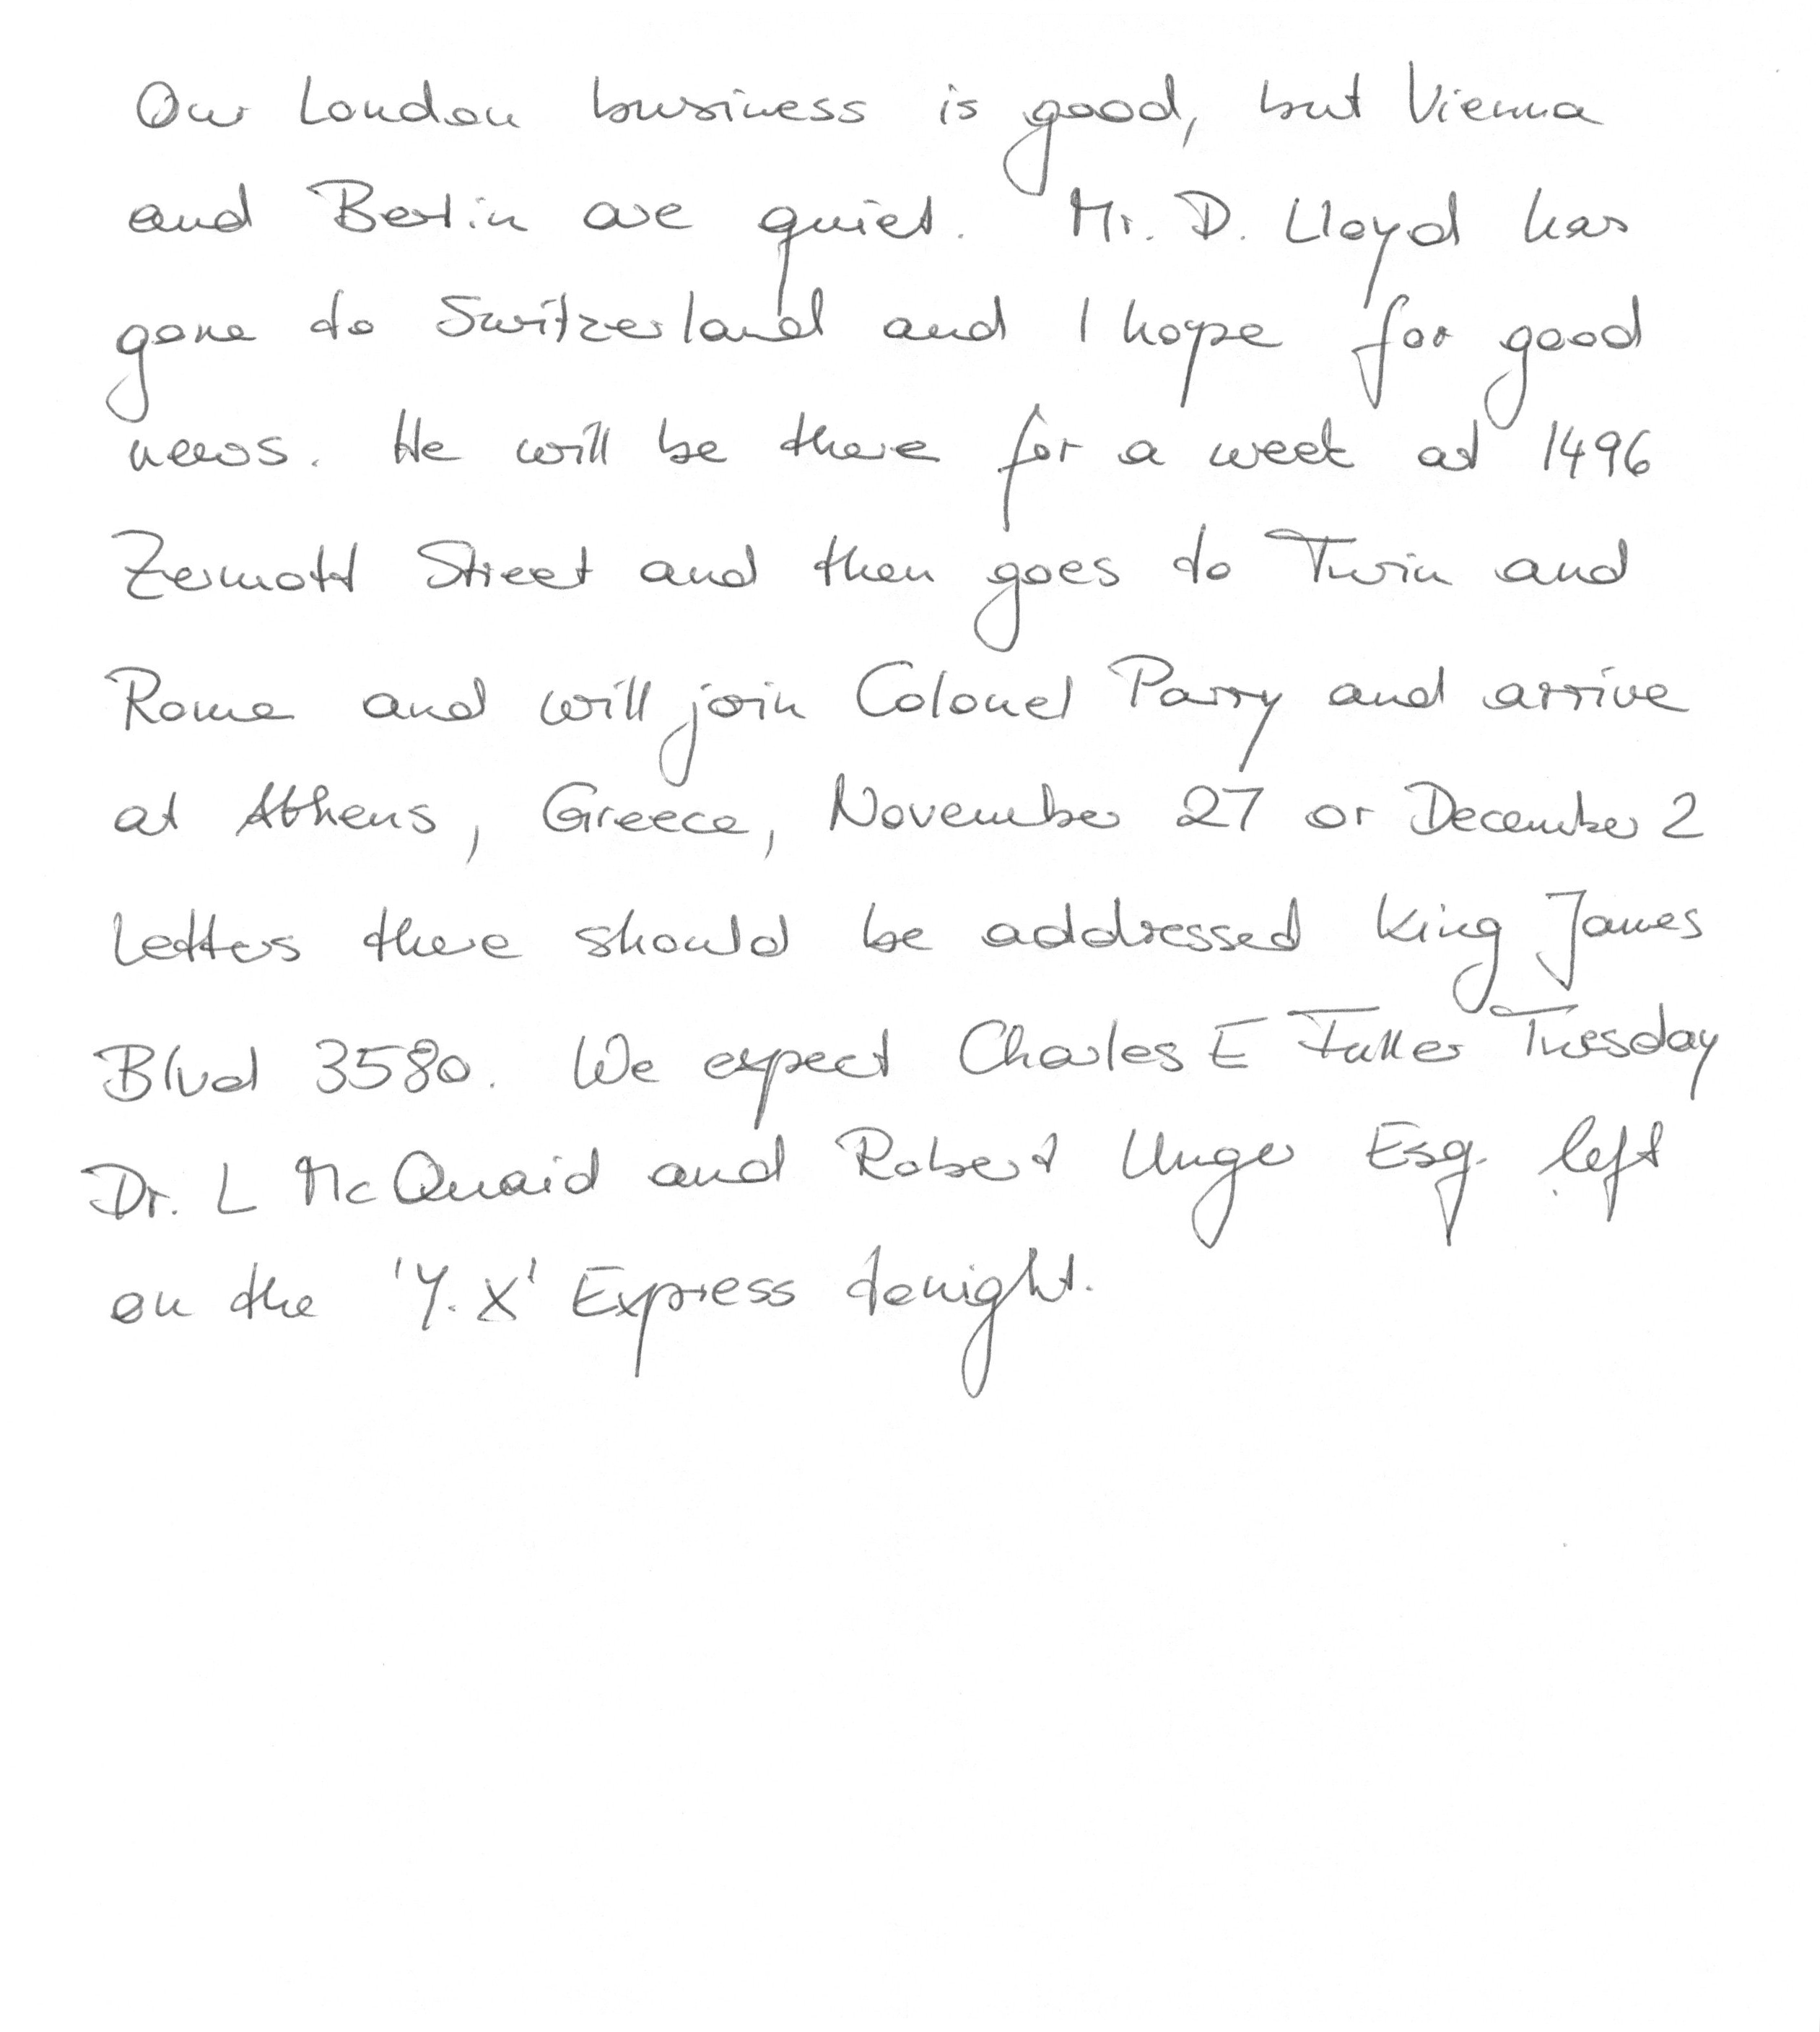 Our London business is good, but Vienna
and Berlin are quiet. Mr. D. Lloyd has
gone to Switzerland and I hope for good
news. He will be there for a week at 1496
Zermott Street and then goes to Turin and
Rome and will join Colonel Parry and arrive
at Athens, Greece, November 27 or December 2
Letters there should be addressed King James
Blvd 3580. We expect Charles E Fuller Tuesday
Dr. L McQuaid and Robert Unger Esq. left
on the 'Y.X' Express tonight.